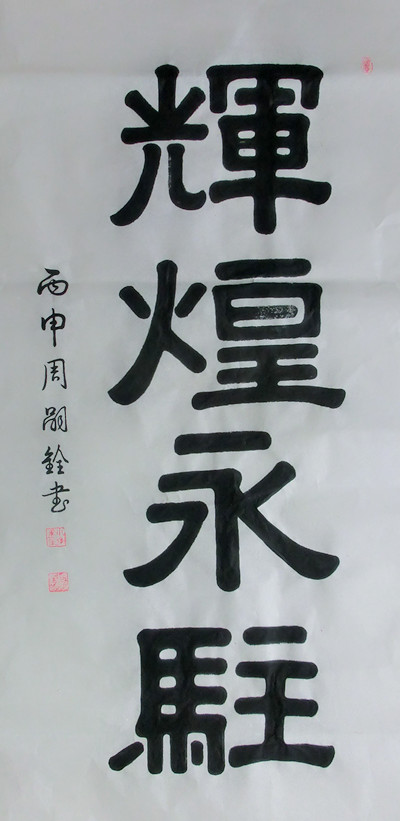 輝煌永駐
丙申周嗣銓书